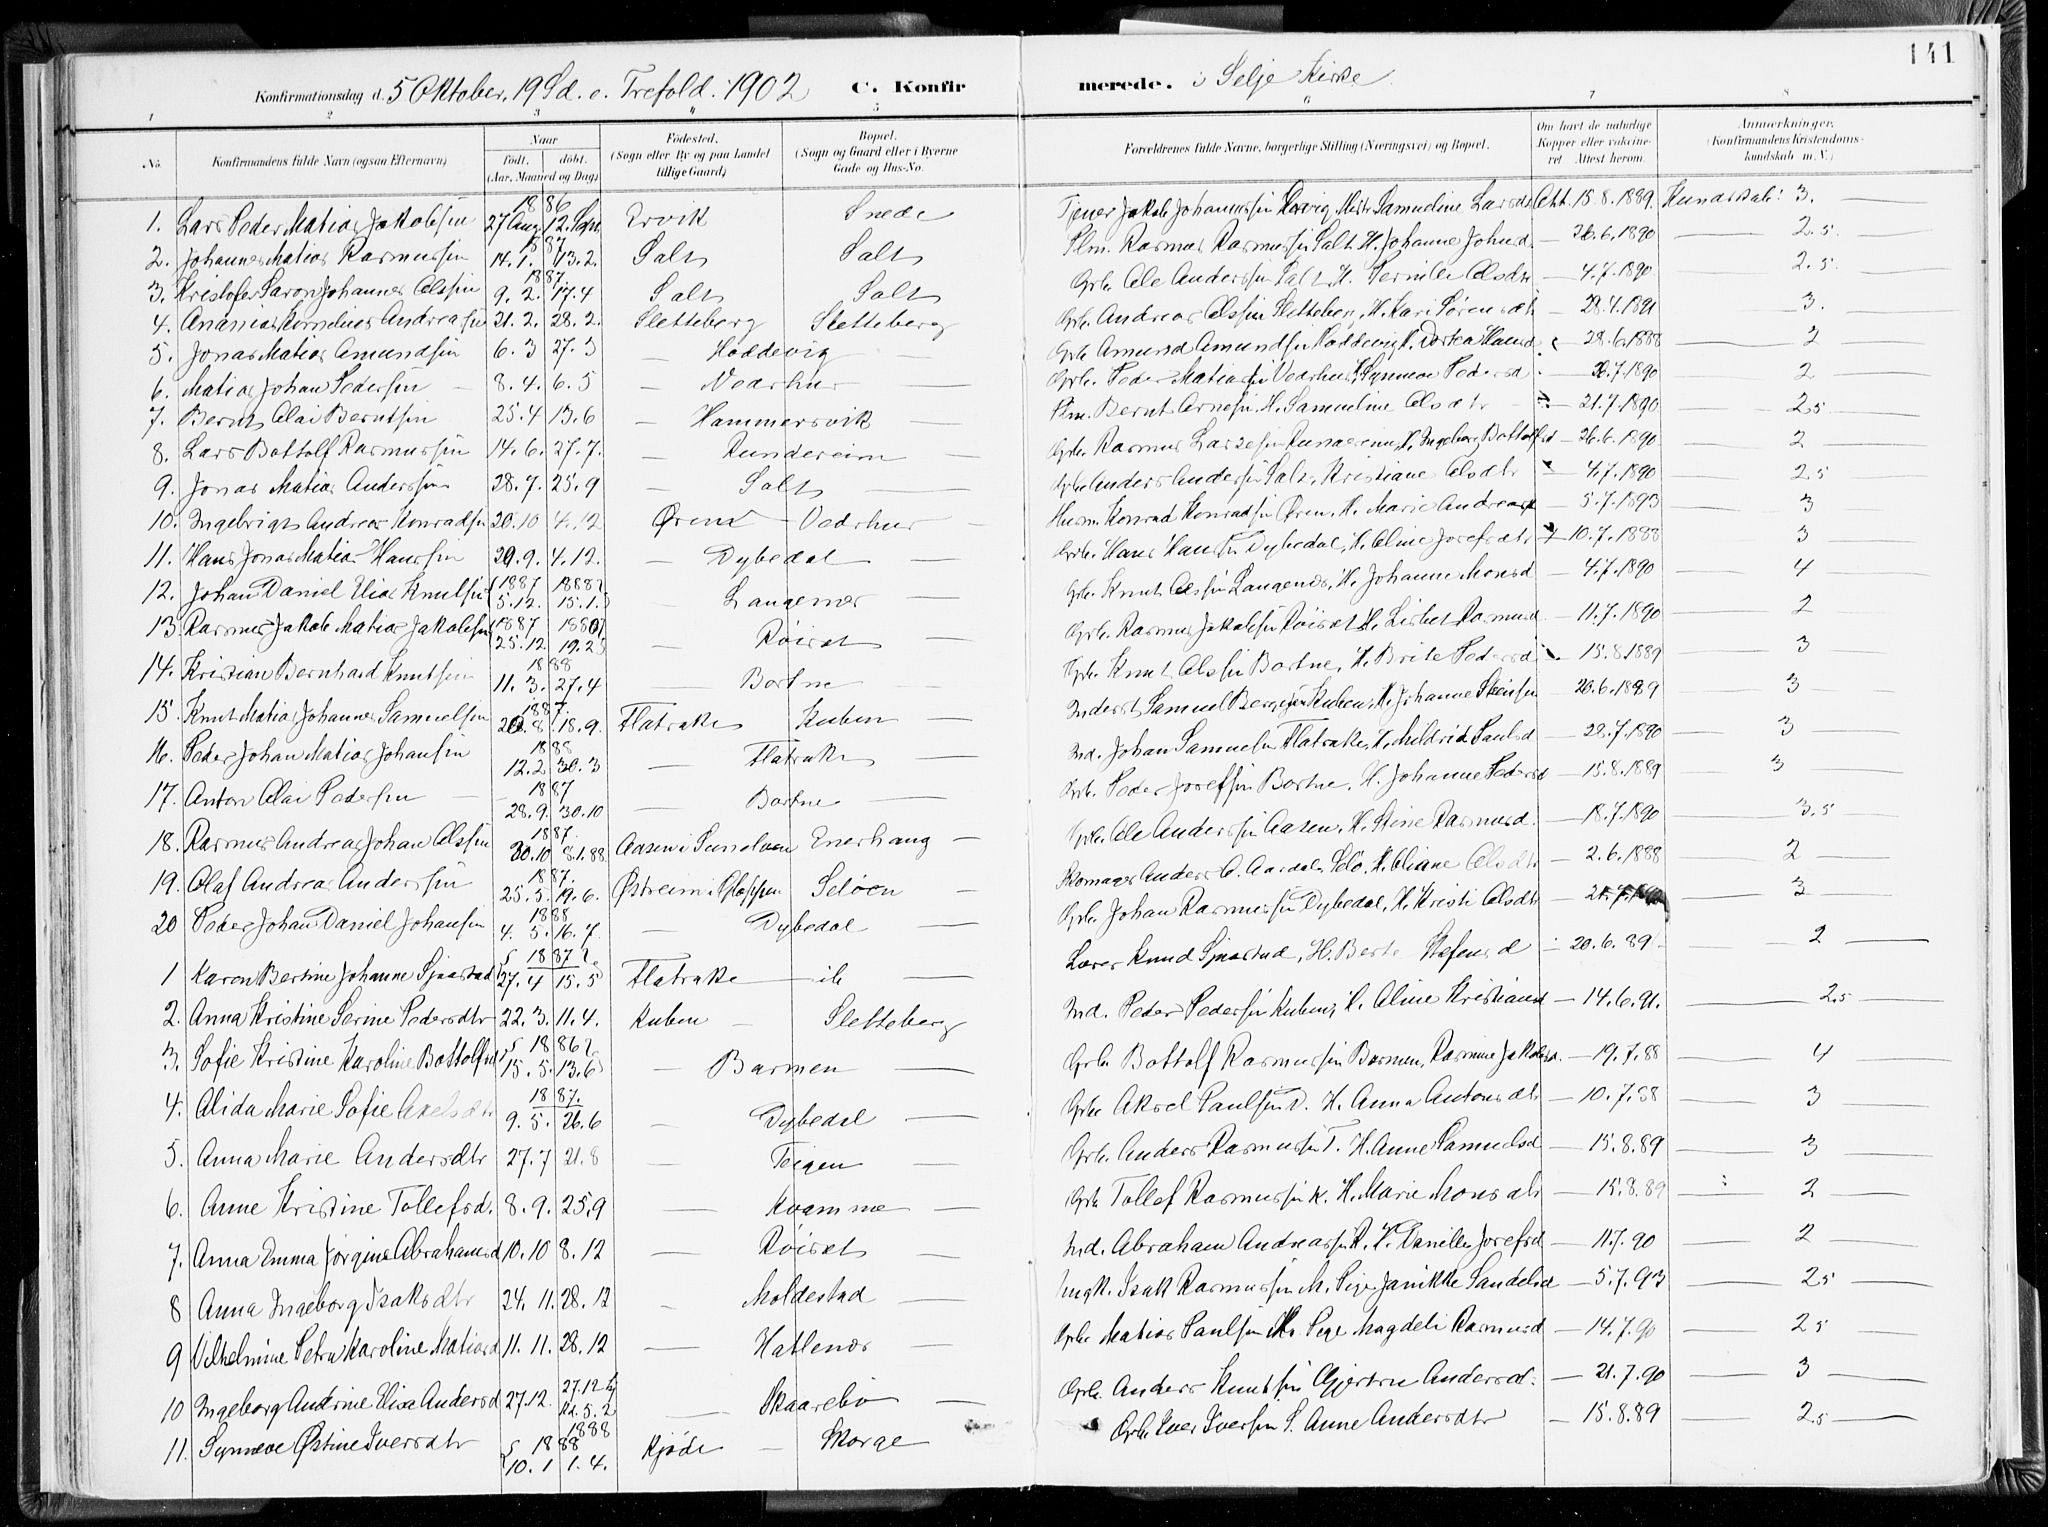 141
Konfirmationsdag d. 5 Oktober, 19 Sd. e. Trefold. 1902 C. Konfirmerede. i Selje Kirke
1 2 3 4 5 6 7 8
No. Konfirmandens fulde Navn (ogsaa Efternavn) Naar født. døbt. (Aar, Maaned og Dag) Fødested. (Sogn eller By og paa Landet tillige Gaard) Bopæl. (Sogn og Gaard eller i Byerne Gade og Hus-No. Forældrenes fulde Navne, borgerlige Stilling (Næringsvei) og Bopæl. Om havt de naturlige Kopper eller vakcineret Attest herom. Anmærkninger. (Konfirmandens Kristendomskundskab m. V.)
1. Lars Peder Matias Jakobsen 1886 27 Aug. 12. Sept. Ervik Snede Tjener Jakob Johannessen Ervig, Samueline Larsdt Att. 15.8.1889. Kundskab: 3.
2. Johannes Matias Rasmussen 1887 14.1. 13.2. Salt Salt Rasmus Rasmussen Salt, H. Johanne Johnsd. — 26.6.1890 — 2.5
3. Kristofer Saron Johannes Olssen 1887 9.2. 17.4 Salt Salt Grb. Ole Anderssen Salt, H. Pernille Olsdtr — 4.7.1890 — 2.5.
4. Ananias Kornelius Andreasen 21.2. 28.2. Sletteberg Sletteberg Grb. Andreas Olssen Sletteberg, H. Kari Sørensdt. — 28.4.1891 — 3.
5. Jonas Matias Amundsen 6.3 27.3 — Hoddevig Grb. Amund Amundsen Hoddevig, H. Dortea Hansd. — 28.6.1888 — 2
6. Matias Johan Pedersen 8.4. 6.5 — Vedrhus — Grb. Peder Matiassen Vedrhus, Synneve Pedersd — 7.1890 — 2
7. Bernt Olai Berntsen 25.4 13.6 — Hammersvik — Bernt Arnesen, H. Samueline Olsdtr — 21.7.1890 — 2.5
8. Lars Bottolf Rasmussen 14.6. 27.7. — Rundereim — Grb. Rasmus Larsesen Rundereim, H. Ingeborg Bottolfsd — 26.6.1890 — 2
9. Jonas Matias Anderssen 28.7. 25.9 — Salt — Grb. Anders Anderssen Salt, Kristiane Olsdtr — 4.7.1890 — 2.5
10. Ingebrigt Andreas Konradsen 20.10 4.12 Ørene Vedrhus — Husm. Konrad Konradsen Øren, H. Marie Andreasd — 5.7.1893 — 3
11. Hans Jonas Matias Hanssen 29.9. 4.12. — Dybedal — Grb. Hans Hanssen Dybedal, H. Oline Josefsdtr — 10.7.1888 — 3
12. Johan Daniel Elias Knutsen 1887 5.12. 1888 15.1. — Langenes — Grb. Knut Olssen Langenes, H. Johanne Monsd — 4.7.1890 — 4
13. Rasmus Jakob Matias Jakobsen 1887 25.12 19.2 — Røiset — Grb. Rasmus Jakobsen Røiset, H. Lisbet Rasmusd. — 11.7.1890 — 2
14. Kristian Bernhard Knutsen 1888 11.3. 27.4 — Bortne Grb. Knut Olssen Bortne, H. Brite Pedersd — 15.8.1889 — 3
15. Knut Matias Johannes Samuelsen 1887. 8. 18.9. Flatrake Kuben — Inderst Samuel Kuben, H. Johanne — 20.6.1889 — 3
16. Peder Johan Matias Johansen 1888 12.2 30.3 — Flatrake — Ind. Johan Samuelsen Flatrake, H. Mildrid Paulsd — 28.7.1890 — 3
17. Anton Olai Pedersen — 1887 28.9. 30.10 — Bortne — Grb. Peder Josefsen Bortne, H. Johanne Pedersd — 15.8.1889 — 3
18. Rasmus Andreas Johan Olssen 1887. 30.10 8.1.88 Aasen i Sunelven Enerhaug — Grb. Ole Anderssen Aasen, H. Stine Rasmusd. — 18.7.1890 — 3.5
19. Olaf Andreas Anderssen 1887. 25.5. 19.6. Østreim i Gloppen Seløen — Skomager Anders O. Aardal, Selø, H. Oliane Olsdtr — 2.6.1888 — 2
20 Peder Johan Daniel Johansen 1888 4.5. 16.7 — Dybedal — Grb. Johan Rasmussen Dybedal, H. Kristi Olsdtr — 21.7. — 3
1 Karen Bertine Johanne Sjaastad 1887 27.4 15.5 Flatrake — ib — Lærer Knud Sjaastad, H. Berte Stefensd — 20.6.89 — 2
2. Anna Kristine Serine Pedersdtr 22.3. 11.4. Kuben — Sletteberg Ind. Peder Pedersen Kuben, H. Oline Kristiansd — 14.6.91. — 2.5
3. Sofie Kristine Karoline Bottolfsd 1886 15.5. 13.6 — Barmen — Grb. Bottolf Rasmussen Barmen, Rasmine Jakobsd. — 19.7.88 — 4
4. Alida Marie Sofie Akselsdtr 1887. 9.5. 26.6 — Dybedal — Grb. Aksel Paulsen D. H. Anna Antonsdtr — 10.7.88 — 3
5. Anna Marie Andersdtr 27.7 21.8 — Teigen — Grb. Anders Rasmussen T. H. Anne Samuelsd — 15.8.89 — 3
6. Anne Kristine Tollefsd. 8.9. 25.9 — Kvamme — Grb. Tollef Rasmussen K. H. Marie Monsdtr — 15.8.89 — 2
7. Anna Emma Jørgine Abrahamsd 10.10 8.12 — Røiset — Ind. Abraham Andreassen R. H. Danielle Josefsd — 11.7.90 — 2
8 Anna Ingeborg Isaksdtr 24.11. 28.12 — Moldestad — Ungk. Isak Rasmussen M. Pige Janikke Sandelsd — 5.7.93 — 2.5
9 Vilhelmine Petra Karoline Matiasd 11.11. 28.12 — Hatlenes — Grb. Matias Paulsen Pige Magdeli Rasmusd — 14.7.90 — 2.5
10 Ingeborg Andrine Elisa Andersd 27.12. 27.12 12.5. — Skaarebø — Grb. Anders Knutsen Gjertru Andersd. — 21.7.90 — 3
11. Synneve Østine Iversdtr 1888 10.1 1888 1.4. Kjøde — Skorge Grb. Iver Iversen S. Anne Andersdtr — 15.8.89 — 2.5